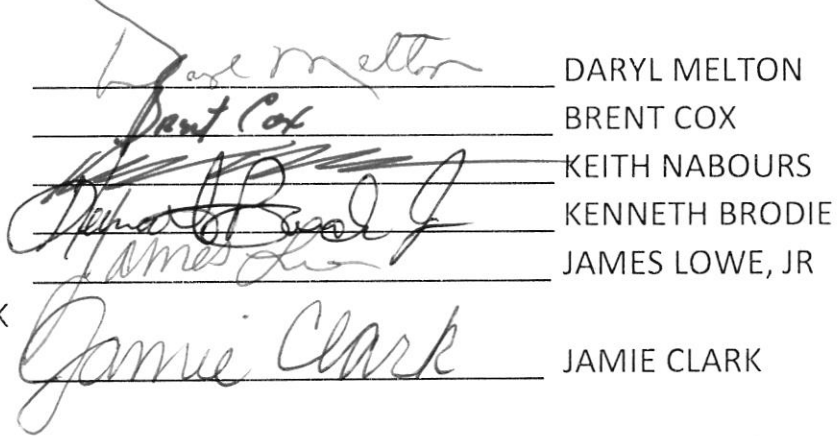 Daryl Melton DARYL MELTON
Brent Cox BRENT COX
KEITH NABOURS
KENNETH BRODIE
James JAMES LOWE, JR
K
Jamie Clark JAMIE CLARK